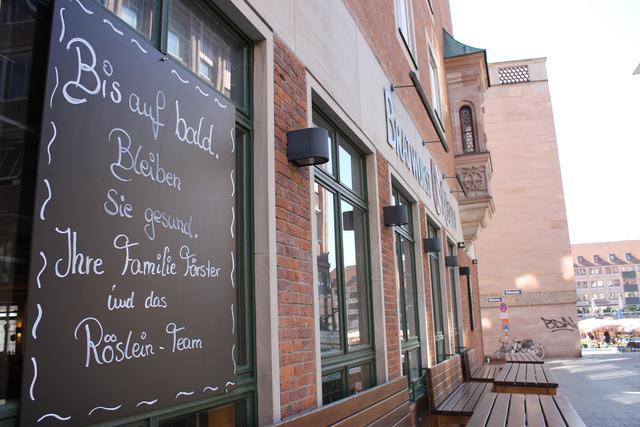 Bis auf bald.
Bleiben
Sie gesund.
Ihre Familie Förster
und das
Röslein-Team
BRATWURST